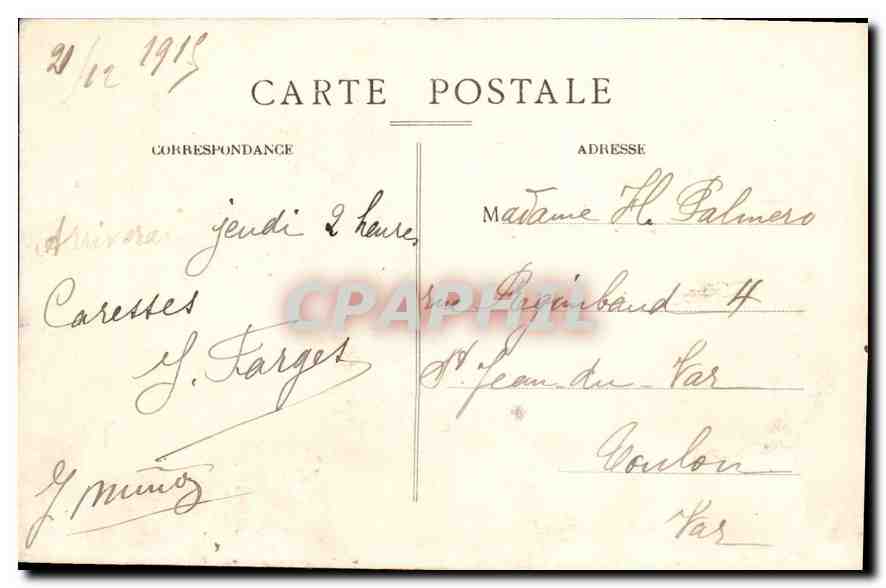 21/12 1915
CARTE POSTALE
CORRESPONDANCE
Arriverai jeudi 2 heures
Caresses
Y. Farges
Y. Muñoz
ADRESSE
Madame H. Palmero
rue Raginbaud 4
St. Jean-du-Var
Toulon
Var
CPAPHIL